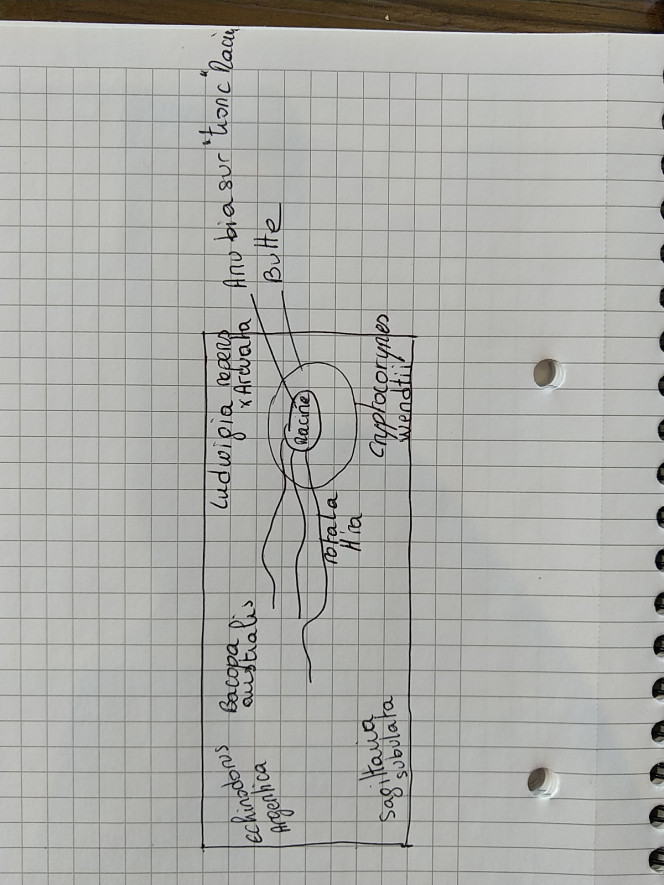 Anubia sur "tronc "Racin
Butte
Echinodorus
Argentica
Bacopa
australis
Ludwigia repens
x Arcuata
Racine
rotala
H'ra
Cryptocorynes
Wendtii
Sagittaria
subulata